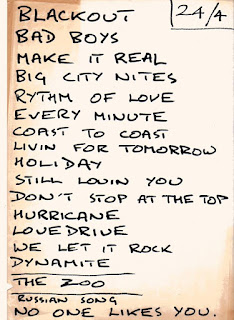 BLACKOUT
24/4
BAD BOYS
MAKE IT REAL
BIG CITY NITES
RYTHM OF LOVE
EVERY MINUTE
COAST TO COAST
LIVIN FOR TOMORROW
HOLIDAY
STILL LOVIN YOU
DON'T STOP AT THE TOP
HURRICANE
LOVEDRIVE
WE LET IT ROCK
DYNAMITE
THE ZOO
RUSSIAN SONG
NO ONE LIKES YOU.